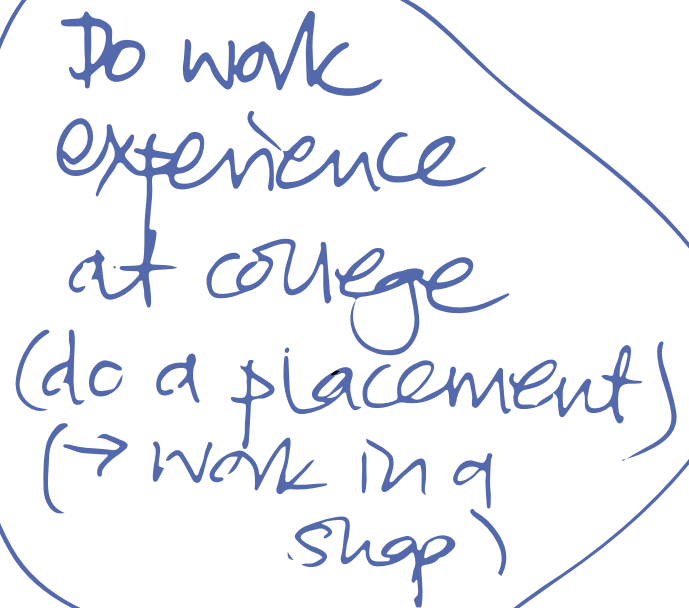 Do work
experience
at college
(do a placement)
(→ work in a
shop)